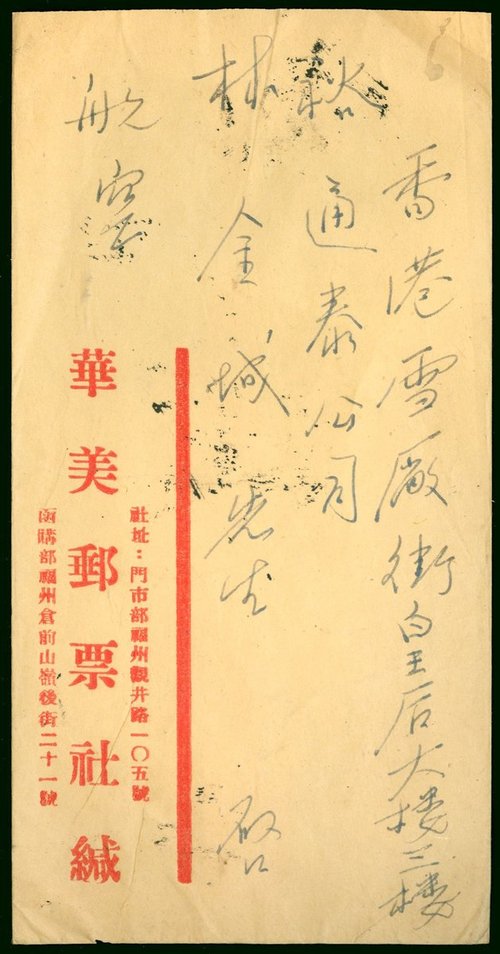 香港雪廠街皇后大楼三楼
裕通泰公司
林金城先生 启
航空
社址：門市部福州觀井路一〇五號
華美郵票社緘
函購部福州倉前山嶺後街二十一號